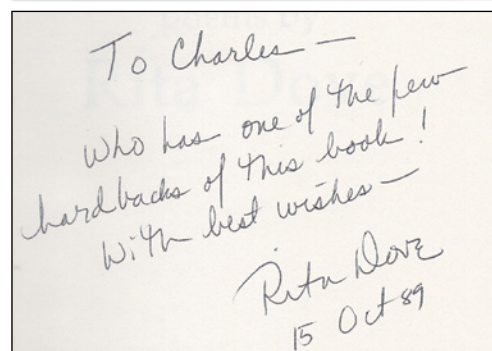 poems by
Rita Dove
To Charles —
Who has one of the few
hardbacks of this book!
With best wishes —
Rita Dove
15 Oct 89